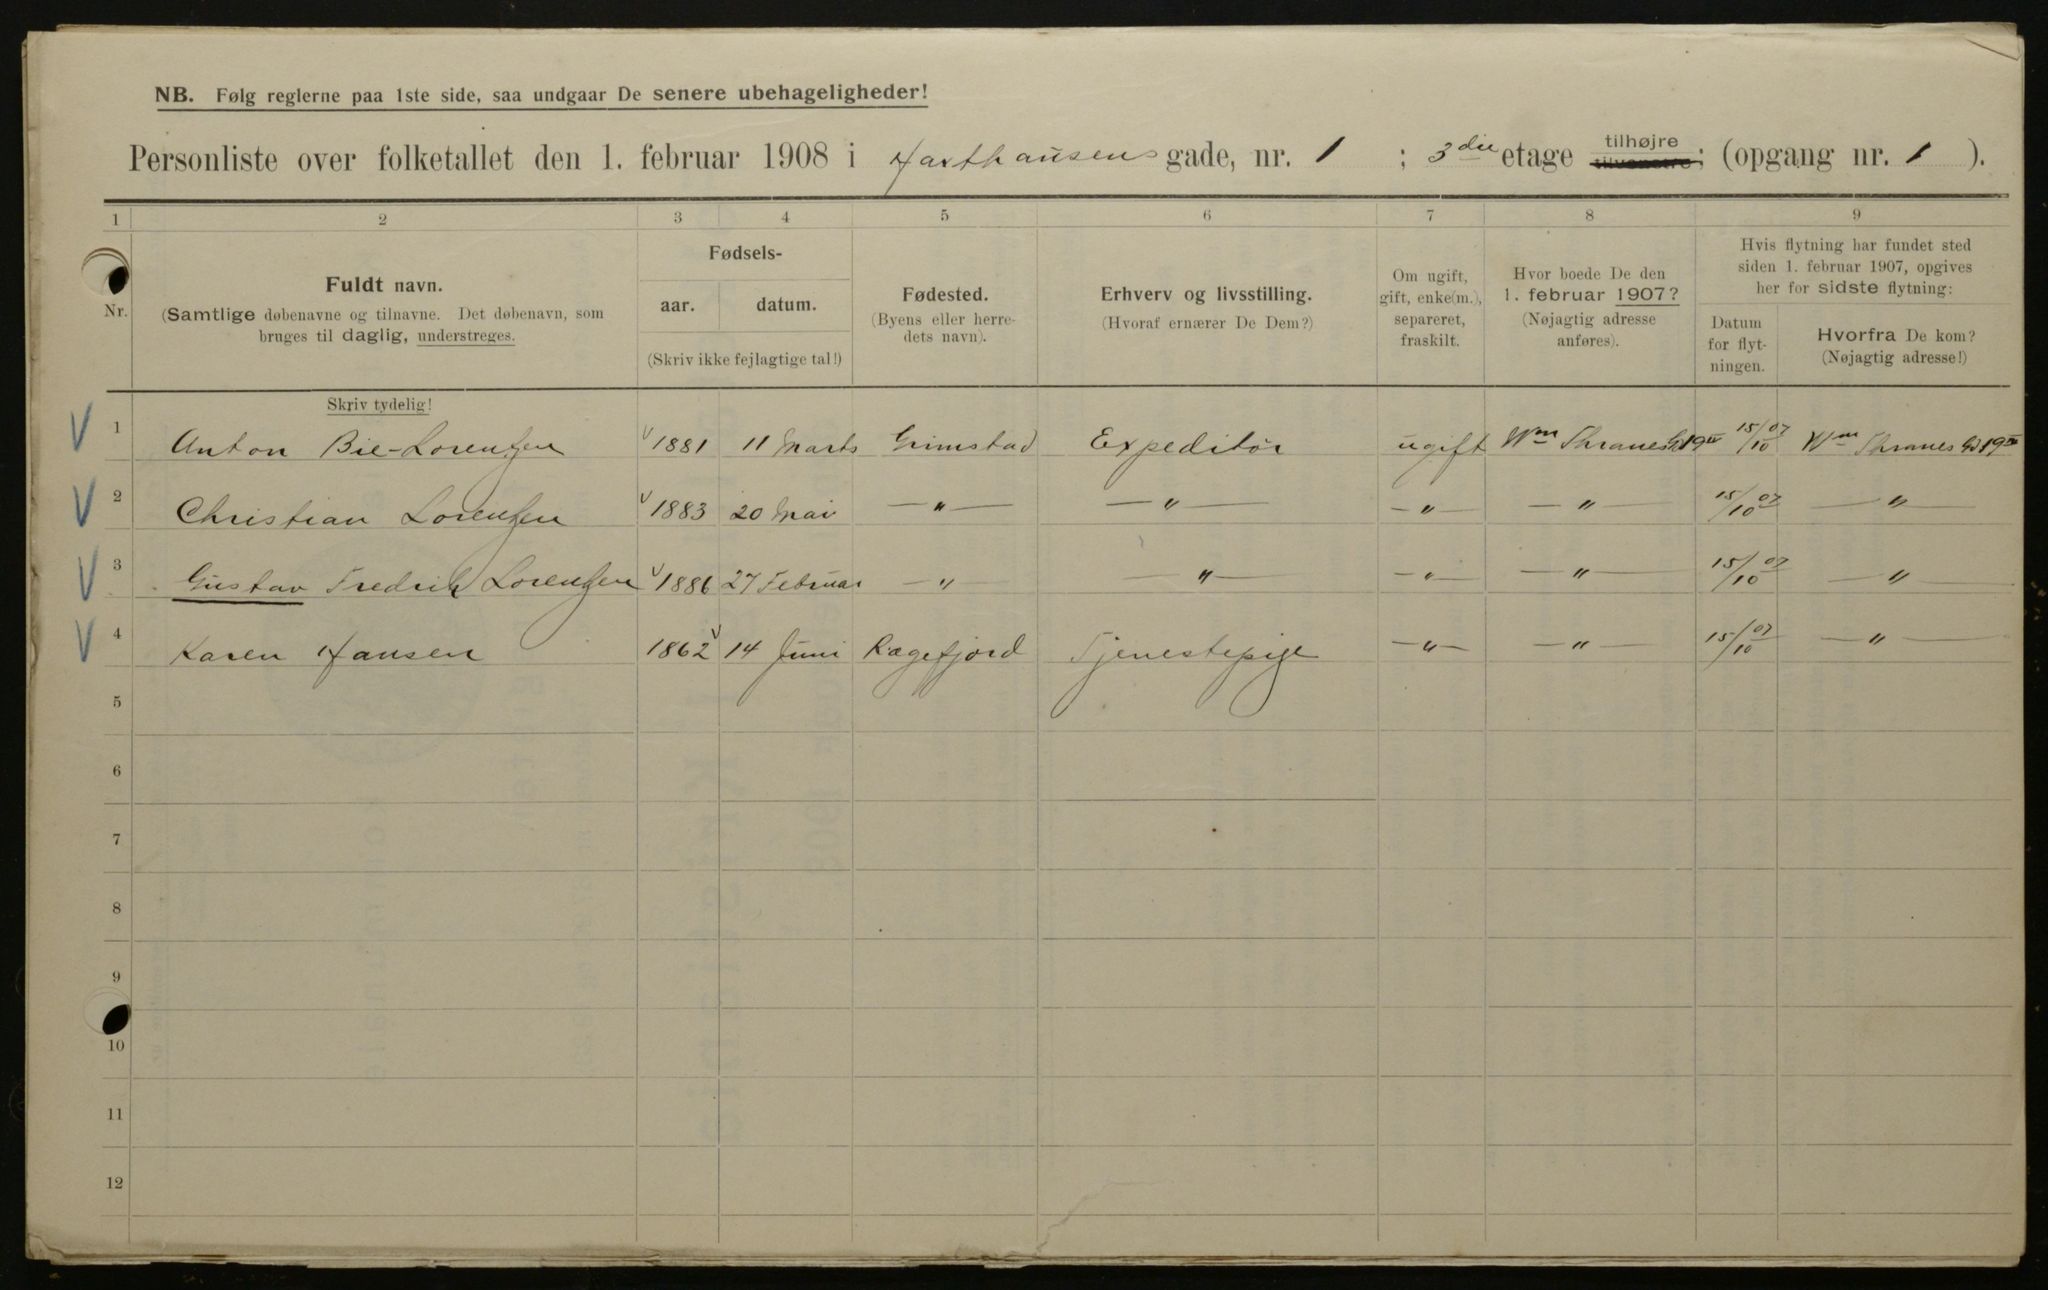 NB. Følg reglerne paa 1ste side, saa undgaar De senere ubehageligheder!
Personliste over folketallet den 1. februar 1908 i Harthausens gade, nr. 1 ; 3die etage tilhøjre tilvenstre; (opgang nr. 1 ).
1 2 3 4 5 6 7 8 9
Nr.
Fuldt navn.
(Samtlige døbenavne og tilnavne. Det døbenavn, som
bruges til daglig, understreges.
Fødsels-
aar. datum.
(Skriv ikke fejlagtige tal!)
Fødested.
(Byens eller herre-
dets navn).
Erhverv og livsstilling.
(Hvoraf ernærer De Dem?)
Om ugift,
gift, enke(m.),
separeret,
fraskilt.
Hvor boede De den
1. februar 1907?
(Nøjagtig adresse
anføres).
Hvis flytning har fundet sted
siden 1. februar 1907, opgives
her for sidste flytning:
Datum
for flyt-
ningen.
Hvorfra De kom?
(Nøjagtig adresse!)
Skriv tydelig!
V 1 Anton Bie-Lorentzen V 1881 11 Marts Grimstad Expeditør ugift Wm Thranes G 19 IV 15/10 07 Wm Thranes Gd 19 IV
V 2 Christian Lorentzen V 1883 20 Mai —"— —"— —"— —"— 15/10 07 —"—
V 3 Gustav Fredrik Lorentzen V 1886 27 Februar —"— —"— —"— —"— 15/10 07 —"—
V 4 Karen Hansen 1862 V 14 Juni Rægefjord Tjenestepige —"— —"— 15/10 07 —"—
5
6
7
8
9
10
11
12